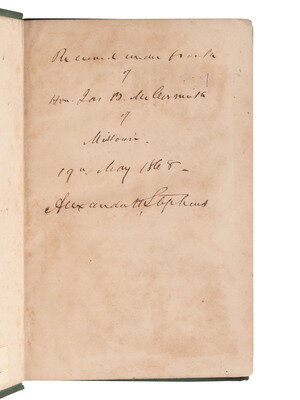 Received under frank
of
Hon. Jas R. McCormick
of
Missouri.
19th May 1868 -
Alexander H. Stephens